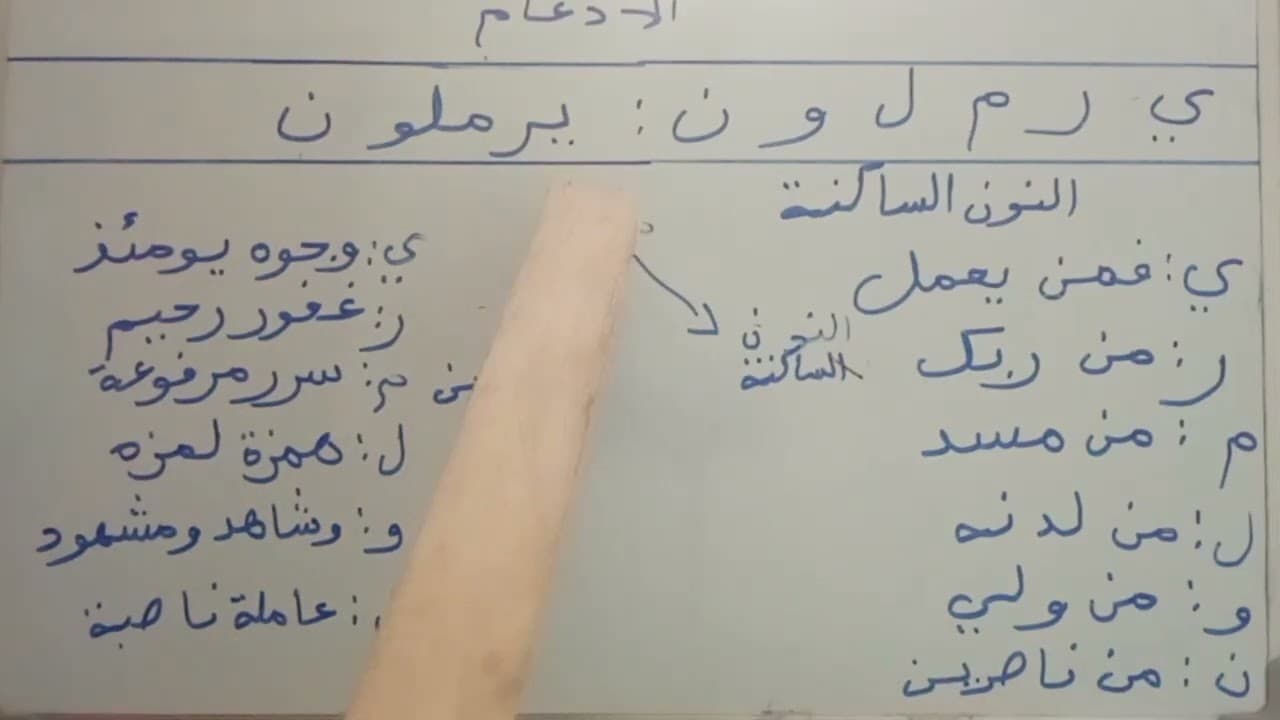 الادغام
ي ر م ل و ن : يرملون
النون الساكنة
ي : فمن يعمل
ر : من ربك
م : من مسد
ل : من لدنه
و : من ولي
ن : من ناصرين
النون
الساكنة
ي : وجوه يومئذ
ر : غفور رحيم
م : سرر مرفوعة
ل : همزة لمزه
و : وشاهد ومشهود
: عاملة ناصبة